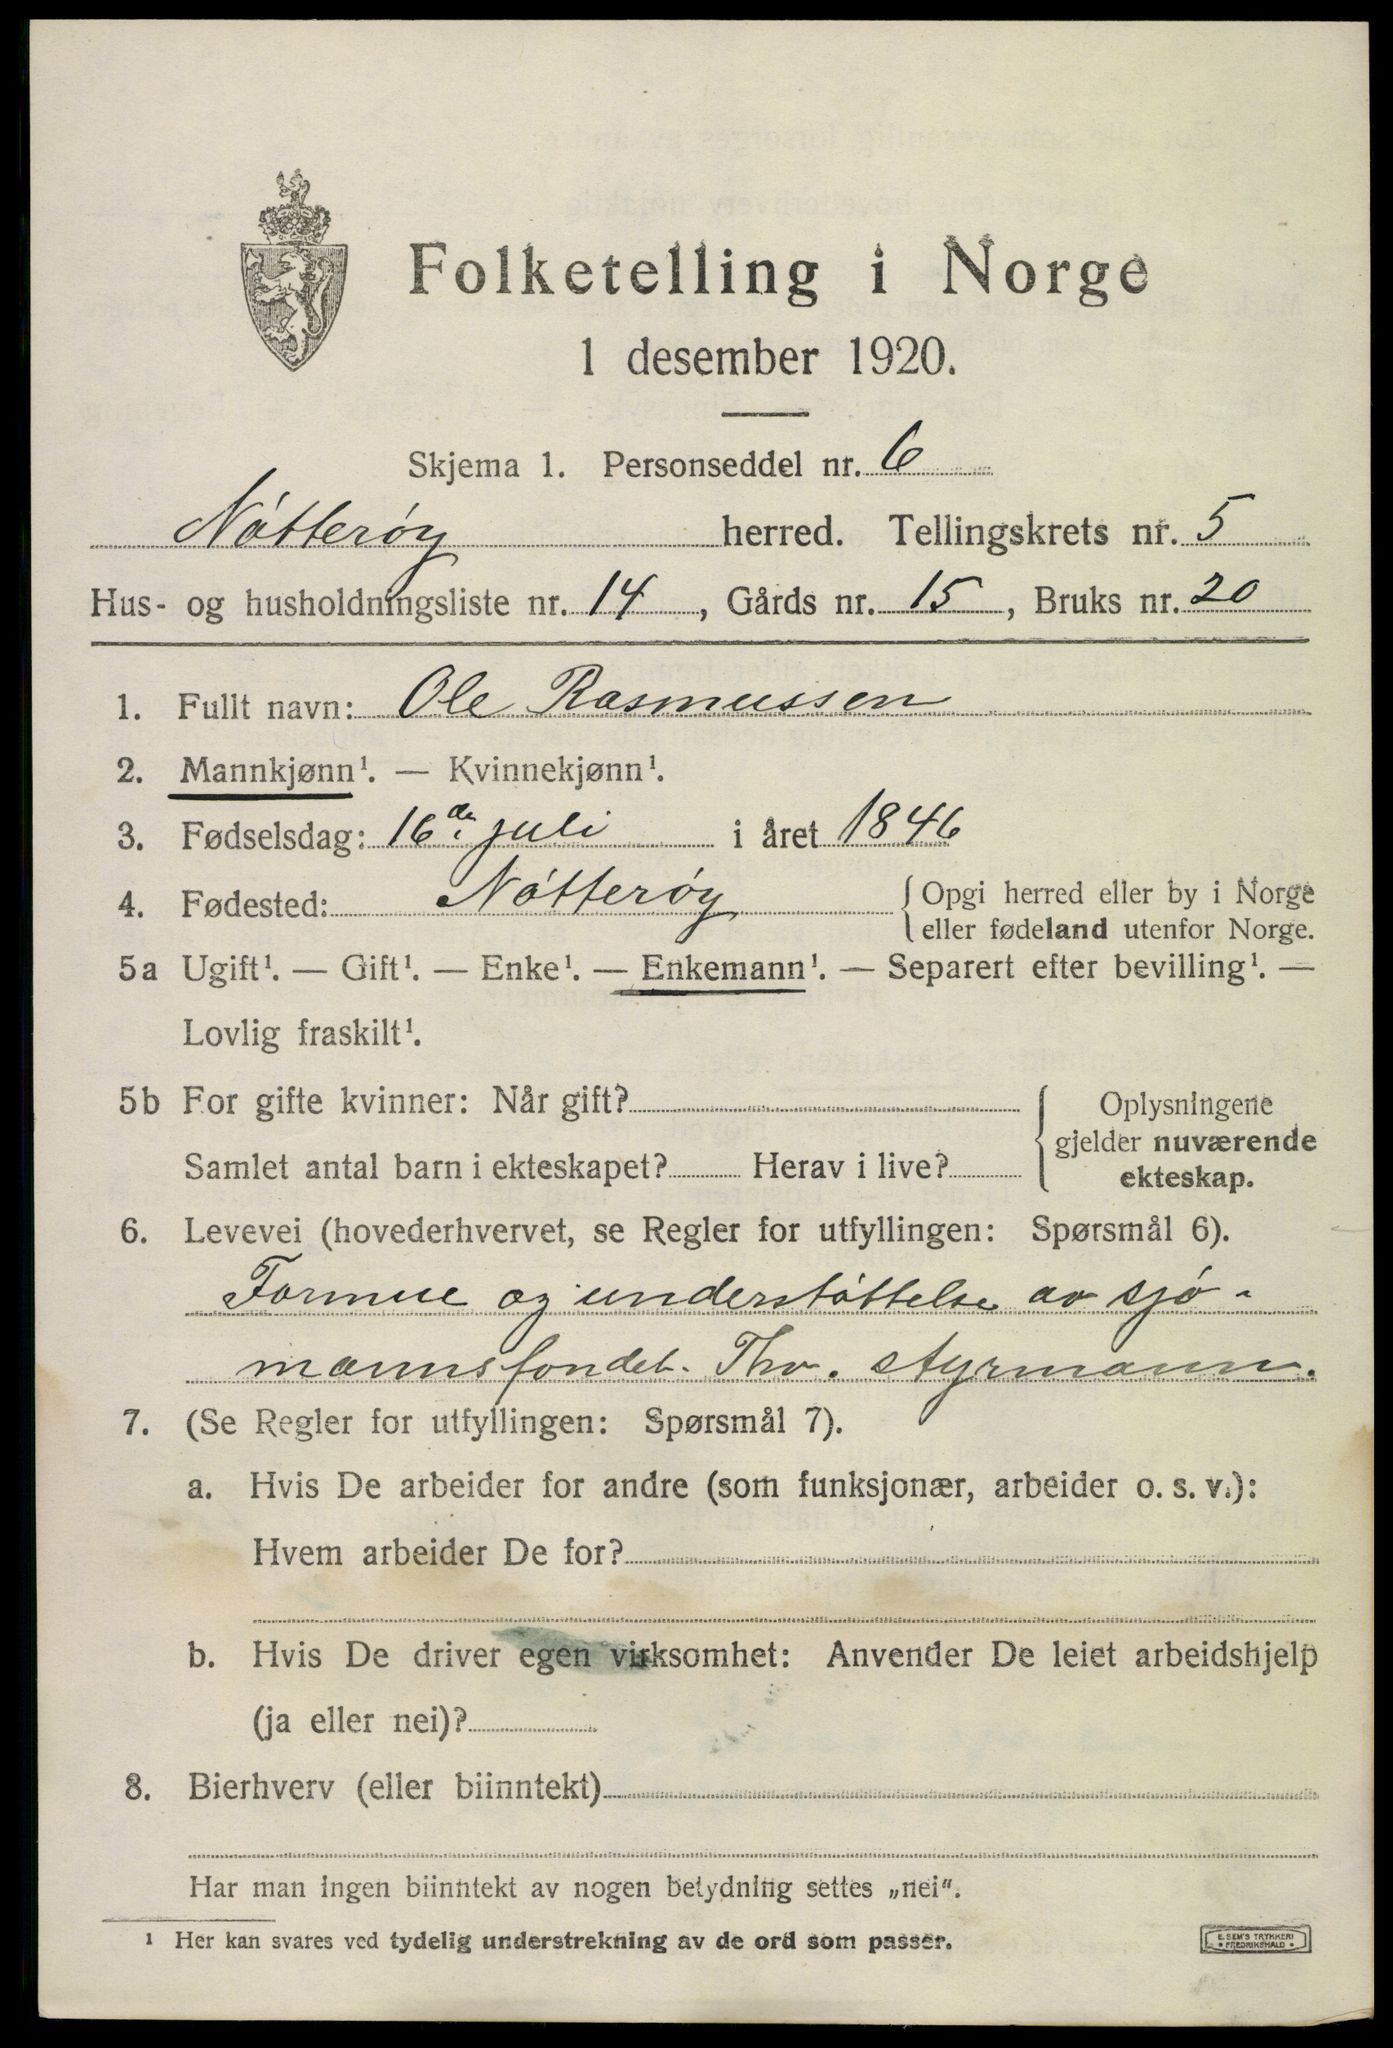 Folketelling i Norge
1 desember 1920.
Skjema 1. Personseddel nr. 6
Nötteröy herred. Tellingskrets nr. 5
Hus- og husholdningsliste nr. 14, Gårds nr. 15, Bruks nr. 20
1. Fullt navn: Ole Rasmussen
2. Mannkjønn¹. — Kvinnekjønn¹.
3. Fødselsdag: 16de juli i året 1846
4. Fødested: Nötteröy { Opgi herred eller by i Norge
eller fødeland utenfor Norge.
5a Ugift¹. — Gift¹. — Enke¹. — Enkemann¹. — Separert efter bevilling¹. —
Lovlig fraskilt¹.
5b For gifte kvinner: Når gift? { Oplysningene
gjelder nuværende
Samlet antal barn i ekteskapet? Herav i live? ekteskap.
6. Levevei (hovederhvervet, se Regler for utfyllingen: Spørsmål 6).
Formue og understöttelse av sjö-
mannsfondet. Fhv. styrmann.
7. (Se Regler for utfyllingen: Spørsmål 7).
a. Hvis De arbeider for andre (som funksjonær, arbeider o. s. v.):
Hvem arbeider De for?
b. Hvis De driver egen virksomhet: Anvender De leiet arbeidshjelp
(ja eller nei)?
8. Bierhverv (eller biinntekt)
Har man ingen biinntekt av nogen betydning settes „nei“.
¹ Her kan svares ved tydelig understrekning av de ord som passer.
E. SEM'S TRYKKERI
• FREDRIKSHALD •